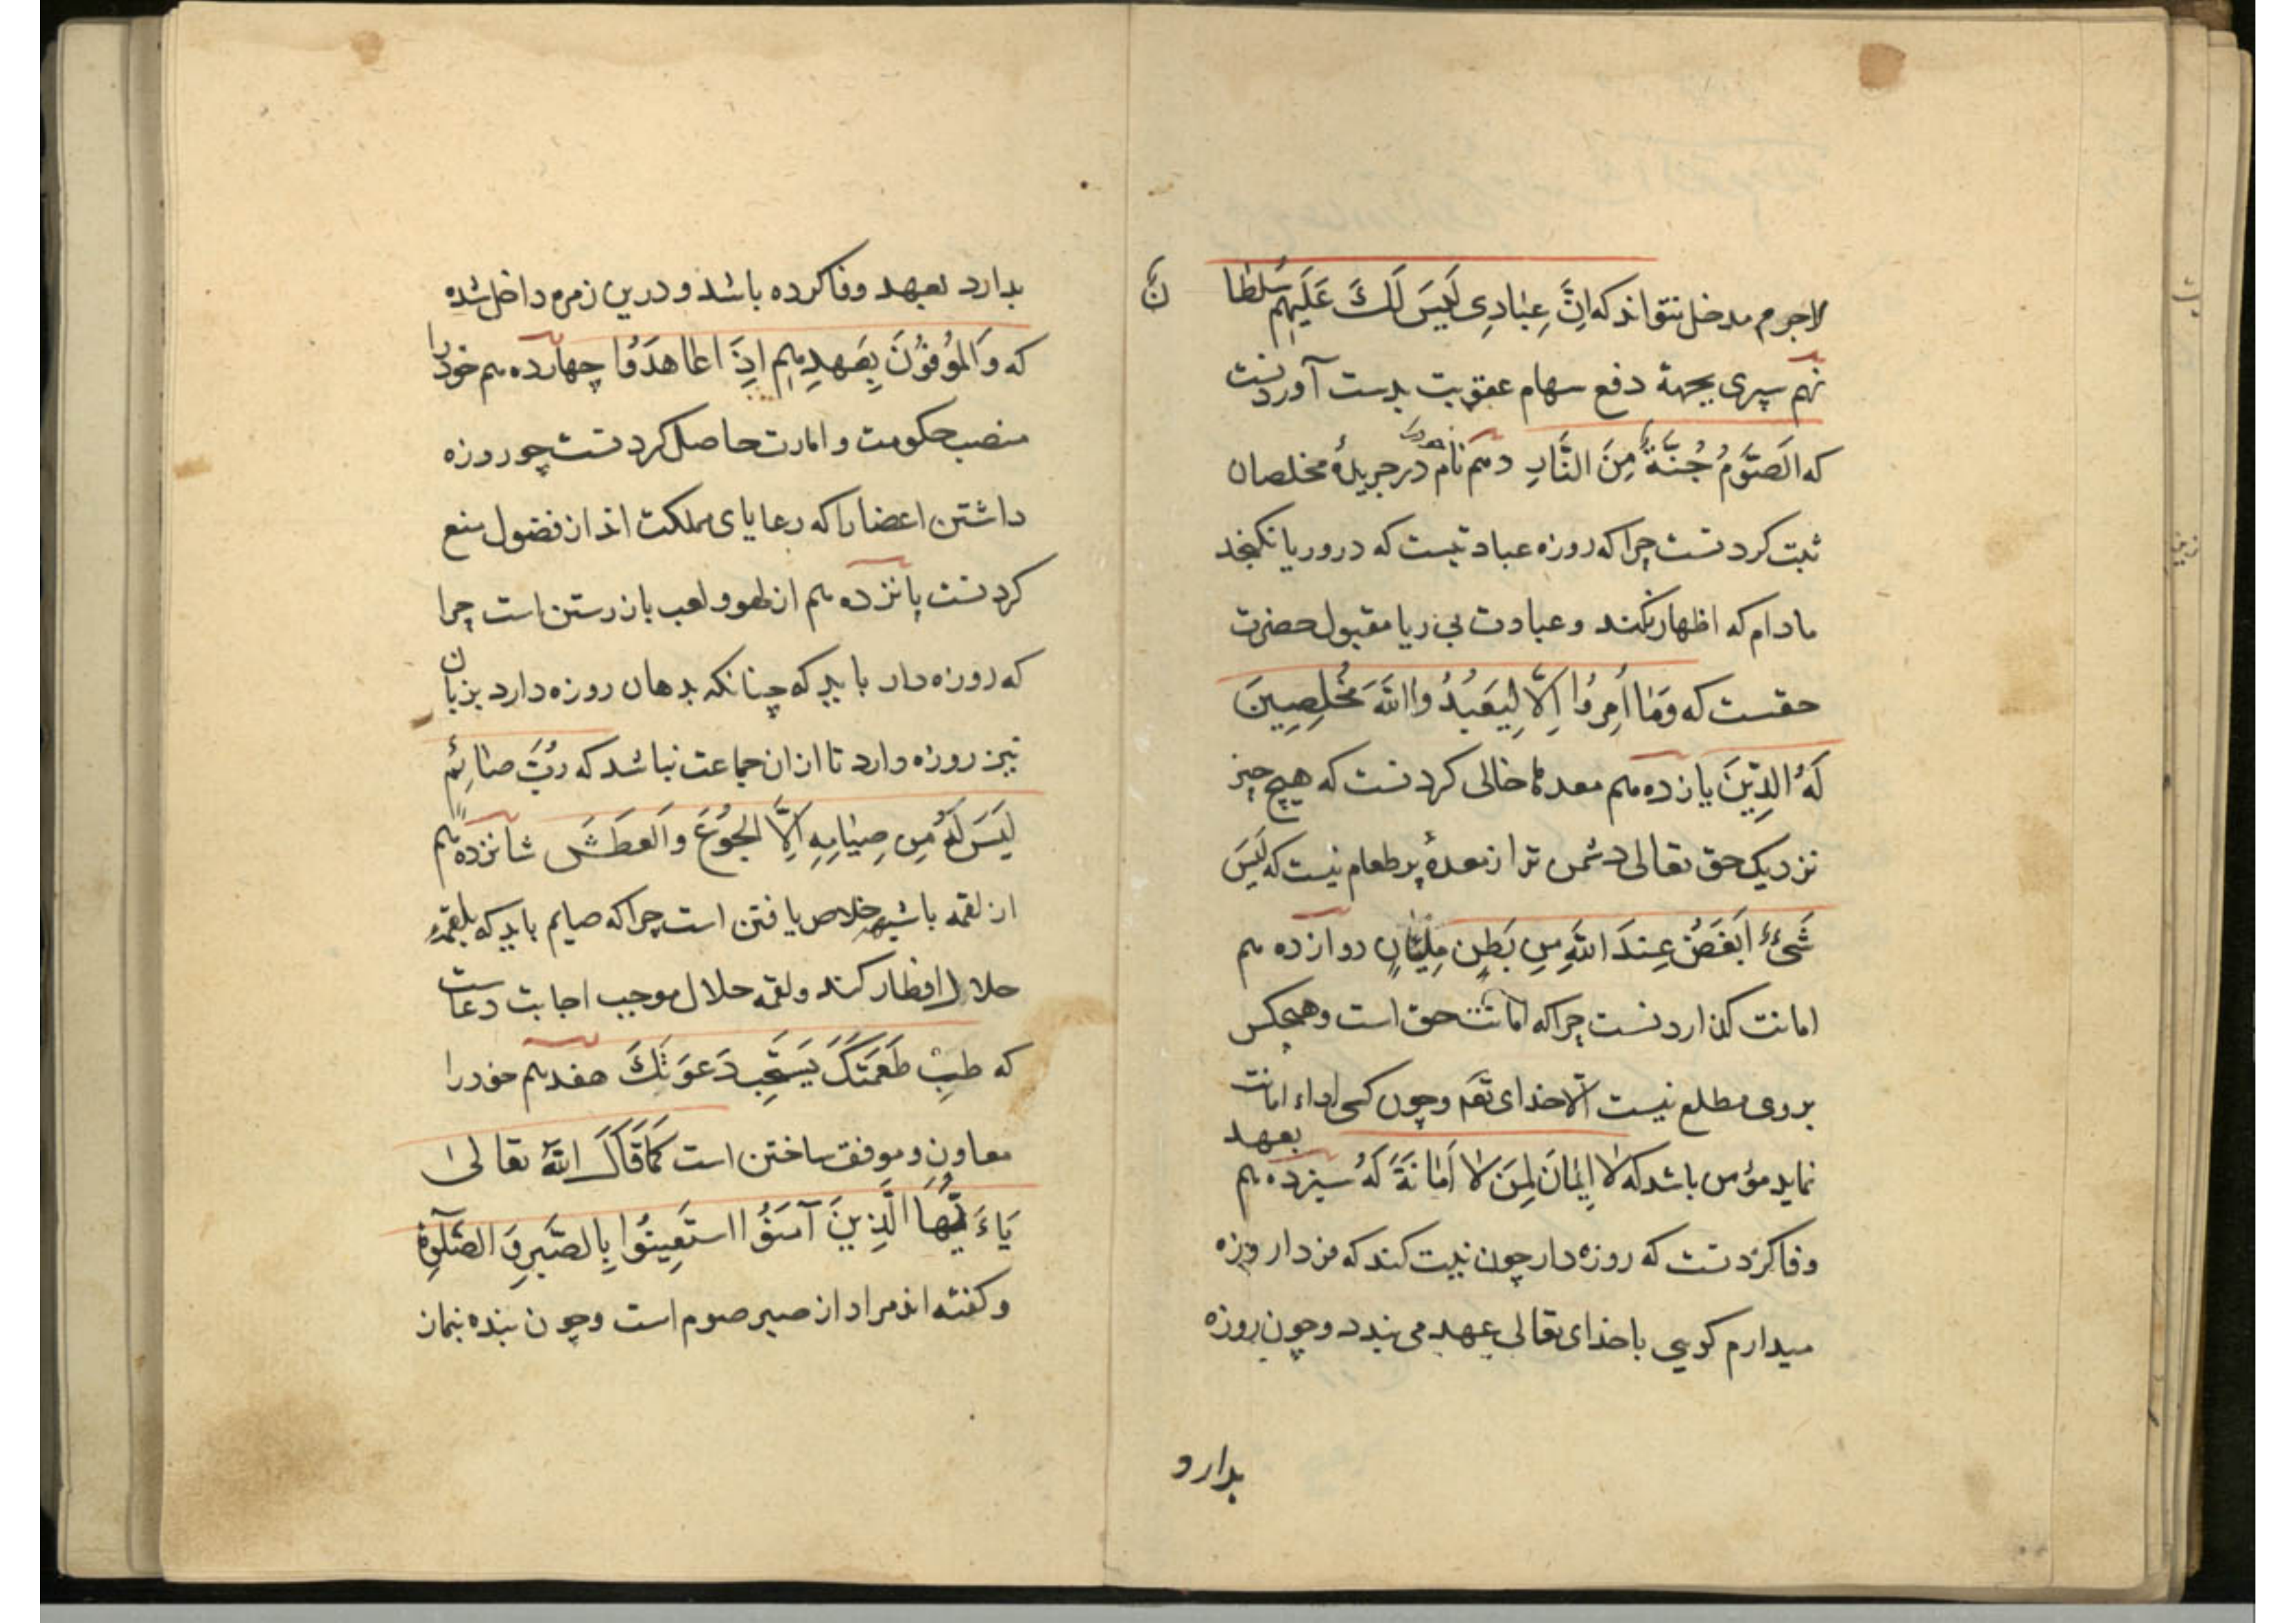 لاجرم مدخل نتواند که اِنَّ عِبٰادِی لَیسَ لَكَ عَلَیهِم سَلطٰا
نَ
نهم سپری بجهة دفع سهام عقوبت بدست آوردنست
که الَصَّومُ جُنَّةٌ مِنَ النَّارِ دهم نام خود در جریدهٔ مخلصان
ثبت کردنست چرا که روزه عبادتیست که درو ریا نکنجد
مادام که اظهار نکند و عبادت بی ریا مقبول حضرت
حقست که وَمٰا اُمِرُوا اِلّٰا لِیَعبُدُوا اللّٰهَ مُخلِصِینَ
لَهُ الدِّینَ یازدهم معده را خالی کردنست که هیچ چیز
نزدیک حق تعالی دشمن تر از معدهٔ پر طعام نیست که لَیسَ
شَیءٌ اَبغَضُ عِندَ اللّٰهِ مِن بَطنٍ مَلیٰانٍ دوازدهم
امانت کذاردنست چرا که امانت حق است و هیچکس
بروی مطلع نیست الّا خدای تعم و چون کسی اداء امانت
نماید مؤمن باشد که لٰا اِیمٰانَ لِمَن لٰا اَمٰانَةَ لَهُ سیزدهم بعهد
وفا کردنست که روزه دار چون نیت کند که فردا روزه
میدارم کویی با خدای تعالی عهد می بندد و چون روزه
بدارد
بدارد بعهد وفا کرده باشد و درین زمره داخل شده
که وَالمُوفُونَ بِعَهدِهِم اِذَا عٰاهَدُوا چهاردهم خود را
منصب حکومت و امارت حاصل کردنست چو روزه
داشتن اعضا را که رعایای مملکت اند از فضول منع
کردنست پانزدهم از لهو و لعب باز رستن است چرا
که روزه دار باید که چنانکه بدهان روزه دارد بزبان
نیز روزه دارد تا ازان جماعت نباشد که رُبَّ صٰائِمٍ
لَیسَ لَهُ مِن صِیٰامِهِ اِلَّا الجُوعَ وَالعَطَشَ شانزدهم
از لقمه با شبهه خلاص یافتن است چرا که صایم باید که بلقمهٔ
حلال افطار کند و لقمه حلال موجب اجابت دعاست
که طیِّب طَعَمَتَكَ یَستَجِب دَعوَتَكَ هفدهم خود را
معاون و موفق ساختن است کَمٰا قَالَ اللّٰهُ تعالیٰ
یَاءَیُّهَا الَّذِینَ آمَنُوا استَعِینُوا بِالصَّبرِ وَ الصَّلٰوةِ
و کفته اند مراد از صبر صوم است و چون بنده بنماز